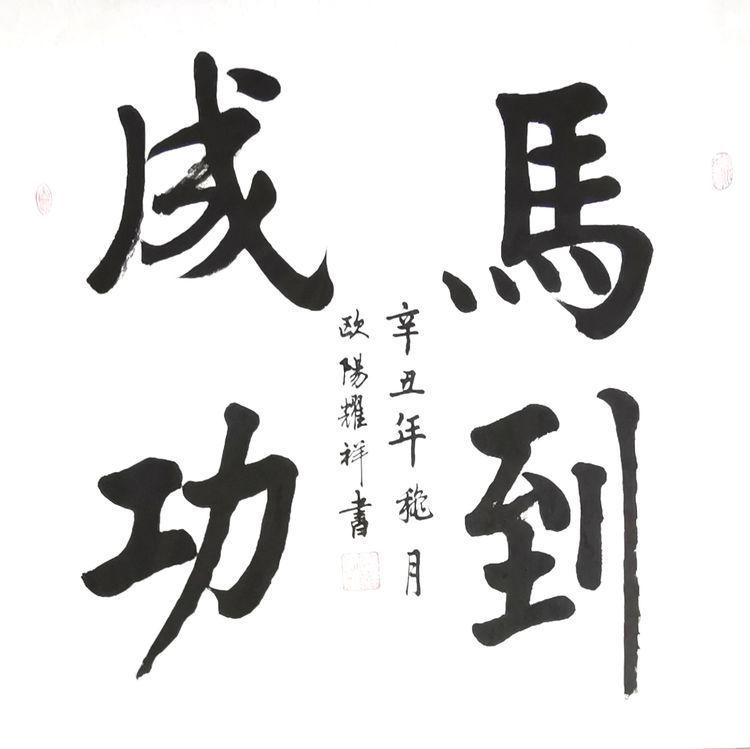 馬到
成功
辛丑年桃月
欧陽耀祥書